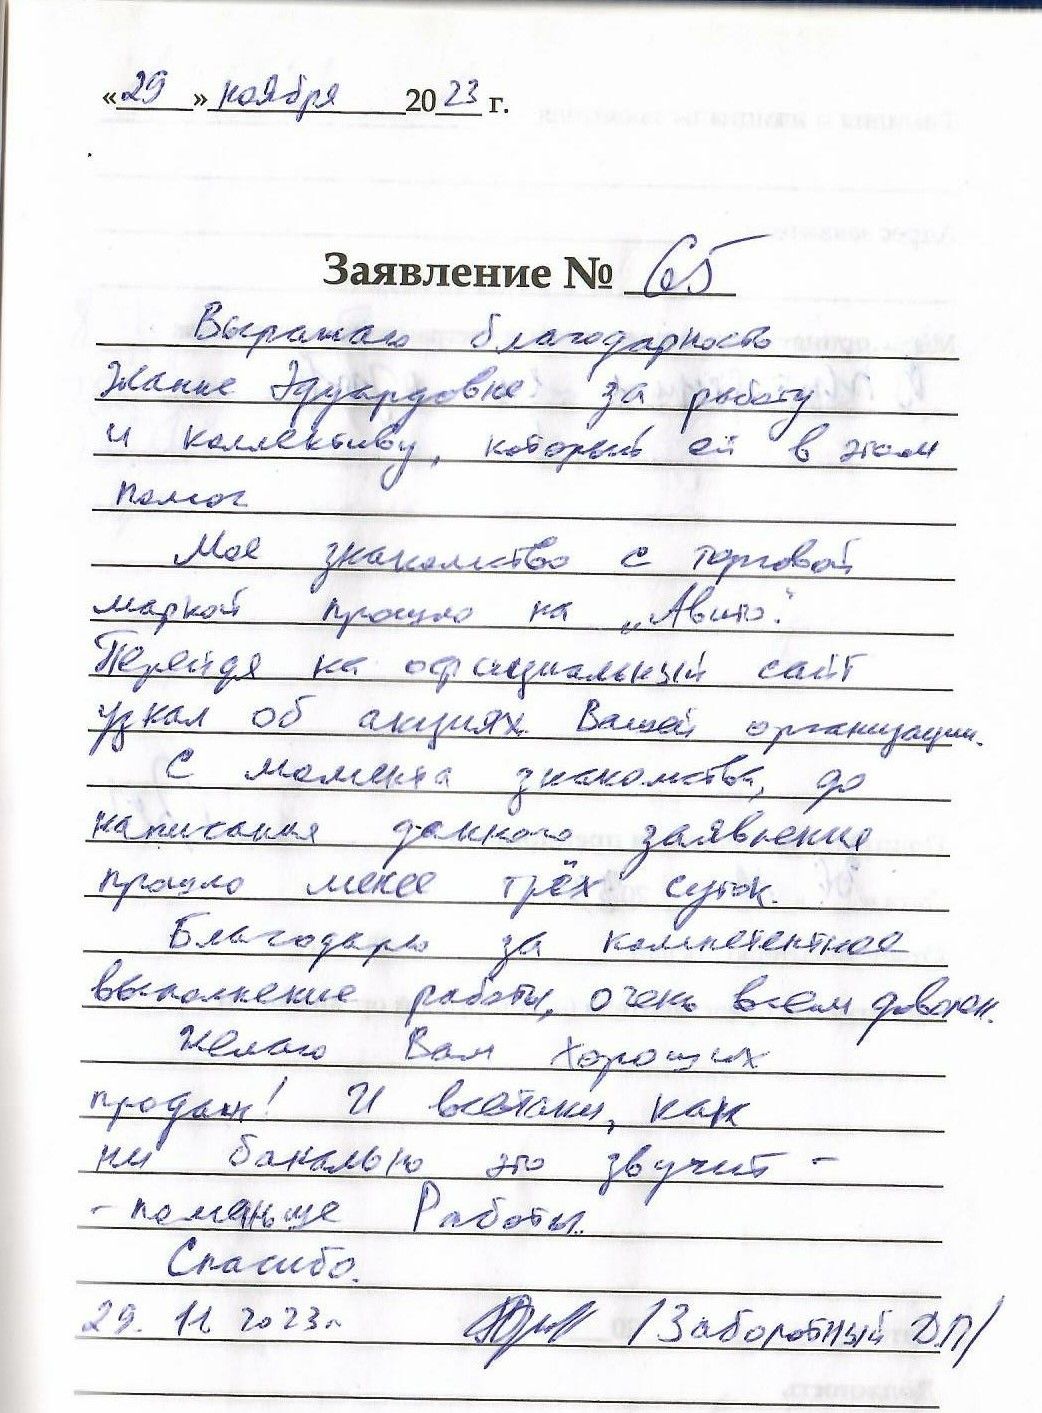 «29» ноября 2023 г.
Заявление № 65
Выражаю благодарность
Жанне Эдуардовне за работу
и коллективу, который ей в этом
помог
Мое знакомство с торговой
маркой прошло на „Авито".
Перейдя на официальный сайт
узнал об акциях Вашей организации.
С момента знакомства, до
написания данного заявления
прошло менее трёх суток.
Благодарю за компетентное
выполнение работы, очень всем доволен.
Желаю Вам хороших
продаж! И всётаки, как
ни банально это звучит -
- поменьше Работы.
Спасибо.
29. 11. 2023г /Заболотный Д.П/